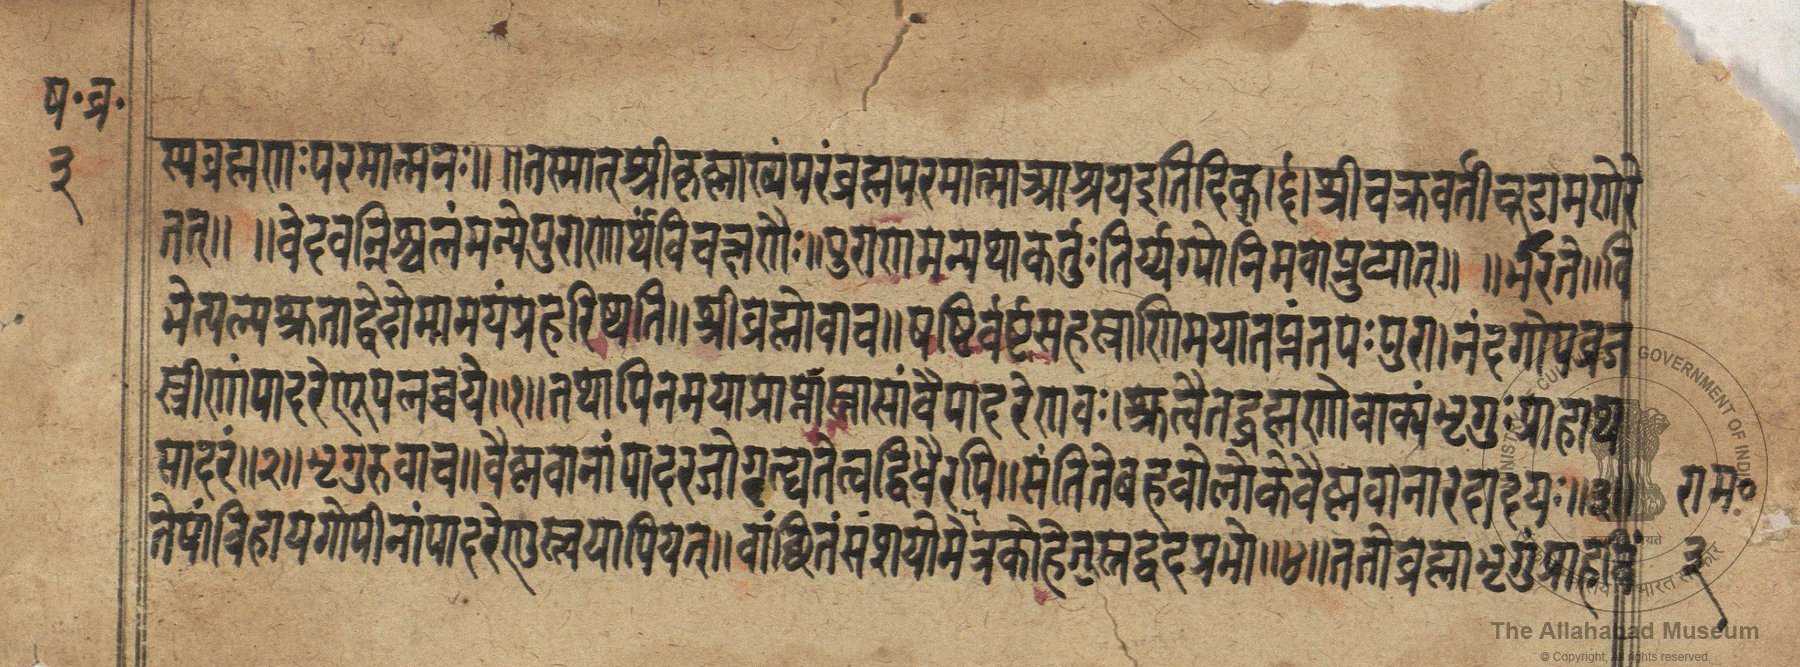 ष॰ब्र॰
३
स्यब्रह्मणःपरमात्मनः॥ ॥तस्मात्श्रीकृष्णाख्यंपरंब्रह्मपरमात्माआश्रयइतिदिक्।ई।श्रीचक्रवर्तीचूडामणेरि
तत्॥ ॥वेदवन्निश्चलंमन्येपुराणार्थंविचक्षणैः॥पुराणमन्यथाकर्तुःतिर्य्यग्योनिमवाप्नुव्यात्॥ ॥ ॥वि
मेत्यल्पश्रुताद्वेदोमामयंप्रहरिष्यति॥श्रीब्रह्मोवाच॥षष्टिर्वर्षसहस्त्राणिमयातप्तंतपःपुरा।नंदगोपव्रज
स्त्रीणांपादरेणूपलब्धये॥१॥तथापिनमयाप्राप्तास्तासांवैपादरेणवः।श्रुत्वैतद्ब्रह्मणोवाक्यंभृगुःप्राहाथ
सादरं॥२॥भृगुरुवाच॥वैष्णवानांपादरजोगृह्यतेत्वद्विधैरपि॥संतितेबहवोलोकेवैष्णवानारदादयः॥३॥
तेषांविहायगोपीनांपादरेणुस्त्वयापियत्॥वांछितंसंशयोमेत्रकोहेतुस्तद्वदप्रभो॥४॥ततोब्रह्माभृगुंप्राह
राम॰
३
GOVERNMENT OF INDIA
The Allahabad Museum
© Copyright, All rights reserved.